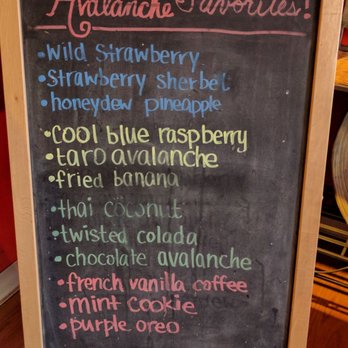 Avalanche Favorites!
•Wild Strawberry
•Strawberry Sherbet
•honeydew pineapple
•Cool blue raspberry
•taro avalanche
•fried banana
•thai coconut
•twisted colada
•chocolate avalanche
•french vanilla coffee
•mint cookie
•purple oreo